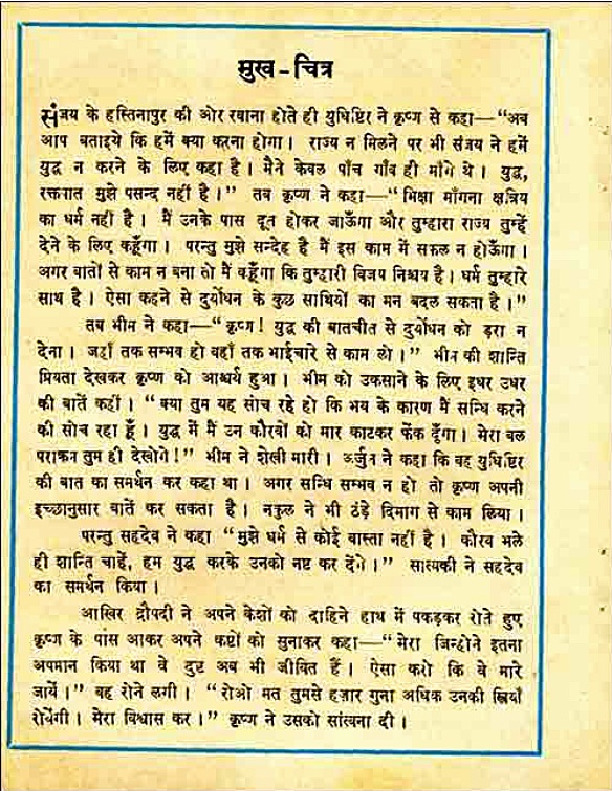 मुख - चित्र
संजय के हस्तिनापुर की ओर रवाना होते ही युधिष्ठिर ने कृष्ण से कहा—“अब
आप बताइये कि हमें क्या करना होगा। राज्य न मिलने पर भी संजय ने हमें
युद्ध न करने के लिए कहा है। मैंने केवल पाँच गाँव ही माँगे थे। युद्ध,
रक्तपात मुझे पसन्द नहीं है।” तब कृष्ण ने कहा—“भिक्षा माँगना क्षत्रिय
का धर्म नहीं है। मैं उनके पास दूत होकर जाऊँगा और तुम्हारा राज्य तुम्हें
देने के लिए कहूँगा। परन्तु मुझे सन्देह है मैं इस काम में सफल न होऊँगा।
अगर बातों से काम न बना तो मैं कहूँगा कि तुम्हारी विजय निश्चय है। धर्म तुम्हारे
साथ है। ऐसा कहने से दुर्योधन के कुछ साथियों का मन बदल सकता है।”
तब भीम ने कहा—“कृष्ण! युद्ध की बातचीत से दुर्योधन को डरा न
देना। जहाँ तक सम्भव हो वहाँ तक भाईचारे से काम लो।” भीम की शान्ति
प्रियता देखकर कृष्ण को आश्चर्य हुआ। भीम को उकसाने के लिए इधर उधर
की बातें कहीं। “क्या तुम यह सोच रहे हो कि भय के कारण मैं सन्धि करने
की सोच रहा हूँ। युद्ध में मैं उन कौरवों को मार काटकर फेंक दूँगा। मेरा बल
पराक्रम तुम ही देखोगे!” भीम ने शेखी मारी। अर्जुन ने कहा कि वह युधिष्ठिर
की बात का समर्थन कर कहा था। अगर सन्धि सम्भव न हो तो कृष्ण अपनी
इच्छानुसार बातें कर सकता है। नकुल ने भी ठंड़े दिमाग से काम लिया।
परन्तु सहदेव ने कहा “मुझे धर्म से कोई वास्ता नहीं है। कौरव भले
ही शान्ति चाहें, हम युद्ध करके उनको नष्ट कर देंगे।” सात्यकी ने सहदेव
का समर्थन किया।
आखिर द्रौपदी ने अपने केशों को दाहिने हाथ में पकड़कर रोते हुए
कृष्ण के पांस आकर अपने कष्टों को सुनाकर कहा—“मेरा जिन्होंने इतना
अपमान किया था वे दुष्ट अब भी जीवित हैं। ऐसा करो कि वे मारे
जायें।” वह रोने लगी। “रोओ मत तुमसे हज़ार गुना अधिक उनकी स्त्रियाँ
रोयेंगी। मेरा विश्वास कर।” कृष्ण ने उसको सांत्वना दी।